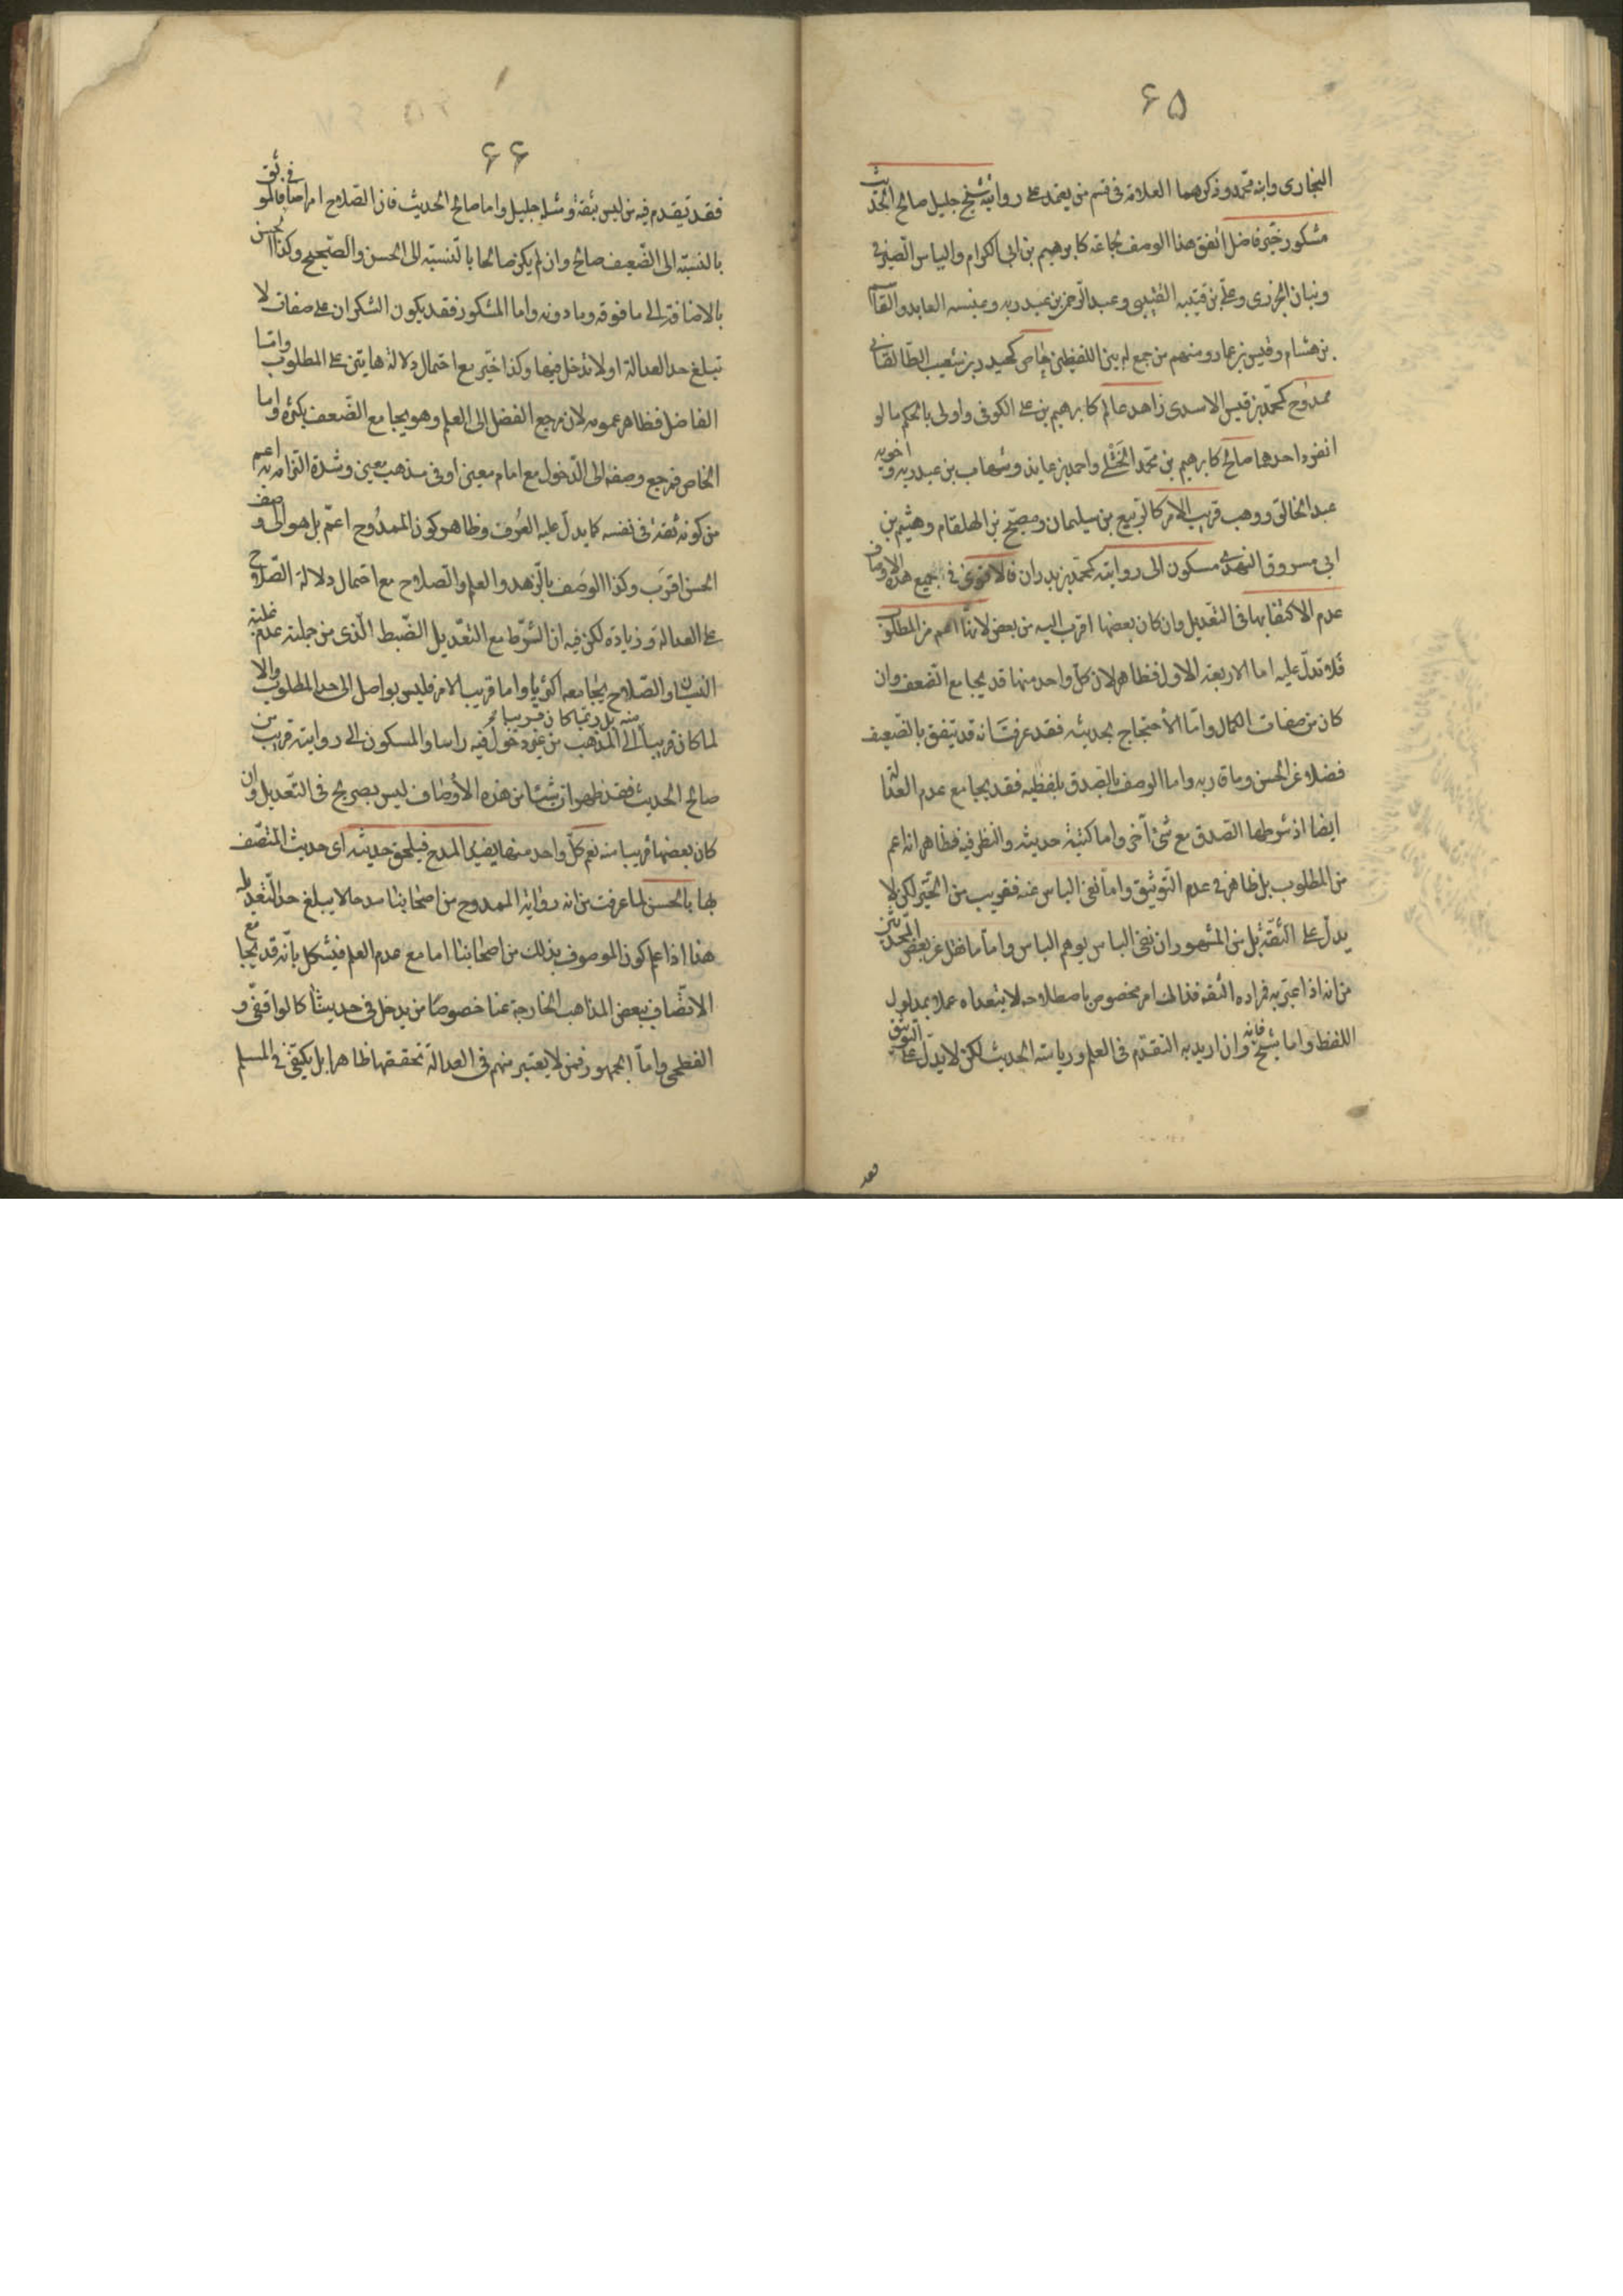 ٦٥
البخارى وابنه محمد وذكرهما العلامة فى قسم من يعتمد على روايته شيخ جليل صالح الحديث
مشكور خيّر فاضل اتفق هذا الوصف لجماعة كابرهيم بن ابى الكرام والياس الصيرفى
وبنان الجزرى وعلى بن قتيبه القتيبى وعبد الرحمن بن عبد ربه وعنبسه العابد والقاسم
بن هشام وقيس بن عمار ومنهم من جمع له بين اللفظين خاص كحيدر بن شعيب الطالقانى
ممدوح كمحمد بن قيس الاسدى زاهد عالم كابرهيم بن على الكوفى واولى بالحكم ما لو
انفرد احدهما صالح كابرهيم بن محمد الختلى واحمد بن عايذ وشهاب بن عبد ربه واخويه
عبد الخالق ووهب قريب الامر كالربيع بن سليمان ومصبح بن الهلقام وهيثم بن
ابى مسروق النهدى مسكون الى روايته كمحمد بن بدران فالاقوى فى جميع هذه الاوصاف
عدم الاكتفا بها فى التعديل وان كان بعضها اقرب اليه من بعض لانها اعم من المطلوب
فلا تدل عليه اما الاربعة الاول فظاهر لان كل واحد منها قد يجامع الضعف وان
كان من صفات الكمال واما الاحتجاج بحديثه فقد عرفت انه قد يتفق بالضعيف
فضلا عن الحسن وما قاربه واما الوصف بالصدق بلفظيه فقد يجامع عدم العدالة
ايضا اذ شرطها الصدق مع شئ آخر واما كتبة حديثه والنظر فيه فظاهر انه اعم
من المطلوب بل ظاهر فى عدم التوثيق واما نفى الباس عنه فقريب من الخيّر لكن لا
يدل على الثقة بل من المشهور ان نفى الباس يوهم الباس واما ما نقل عن بعض المحدثين
من انه اذا عبّر به فمراده الثقه فذالك امر مخصوص باصطلاحه لا يتعداه عملا بمدلول
اللفظ واما شيخ فانه وان اريد به التقدم فى العلم ورياسته الحديث لكن لا يدل على التوثيق
فقد
٦٦
فقد يقدم فيه من ليس بثقة ومثله جليل واما صالح الحديث فان الصلاح امر اضافى فالموثق
بالنسبة الى الضعيف صالح وان لم يكن صالحا بالنسبة الى الحسن والصحيح وكذا الحسن
بالاضافة الى ما فوقه وما دونه واما المشكور فقد يكون الشكران على صفات لا
تبلغ حد العدالة او لا تدخل فيها وكذا خيّر مع احتمال دلالة هايتن على المطلوب واما
الفاضل فظاهر عمومه لان مرجع الفضل الى العلم وهو يجامع الضعف بكثرة واما
الخاص فمرجع وصفه الى الدخول مع امام معين او فى مذهب معين وشدة التزامه به اعم
من كونه ثقة فى نفسه كما يدل عليه العرف وظاهر كون الممدوح اعم بل هو الى وصف
الحسن اقرب وكذا الوصف بالزهد والعلم والصلاح مع احتمال دلالة الصلاح
على العدالة وزيادة لكن فيه ان الشرط مع التعديل الضبط الذى من جملته عدم غلبة
النسيان والصلاح يجامعه اكثريا واما قريب الامر فليس بواصل الى حد المطلوب والا
منه بل ربما كان قريبا
لما كان قريبا الى المذهب من غير دخول فيه راسا والمسكون الى روايته قريب من
صالح الحديث فقد ظهر ان شيئا من هذه الاوصاف ليس بصريح فى التعديل وان
كان بعضها قريبا منه نعم كل واحد منها يفيد المدح فيلحق حديثه اى حديث المتصف
بها بالحسن لما عرفت من انه رواية الممدوح من اصحابنا مدحا لا يبلغ حد التعديل
هذا اذا علم كون الموصوف بذلك من اصحابنا اما مع عدم العلم فيشكل بانه قد يجامع
الاتصاف ببعض المذاهب الخارجة عنا خصوصا من يدخل فى حديثنا كالواقفى و
الفطحى واما الجمهور فمن لا يعتبر منهم فى العدالة تحققها ظاهرا بل يكتفى فى المسلم